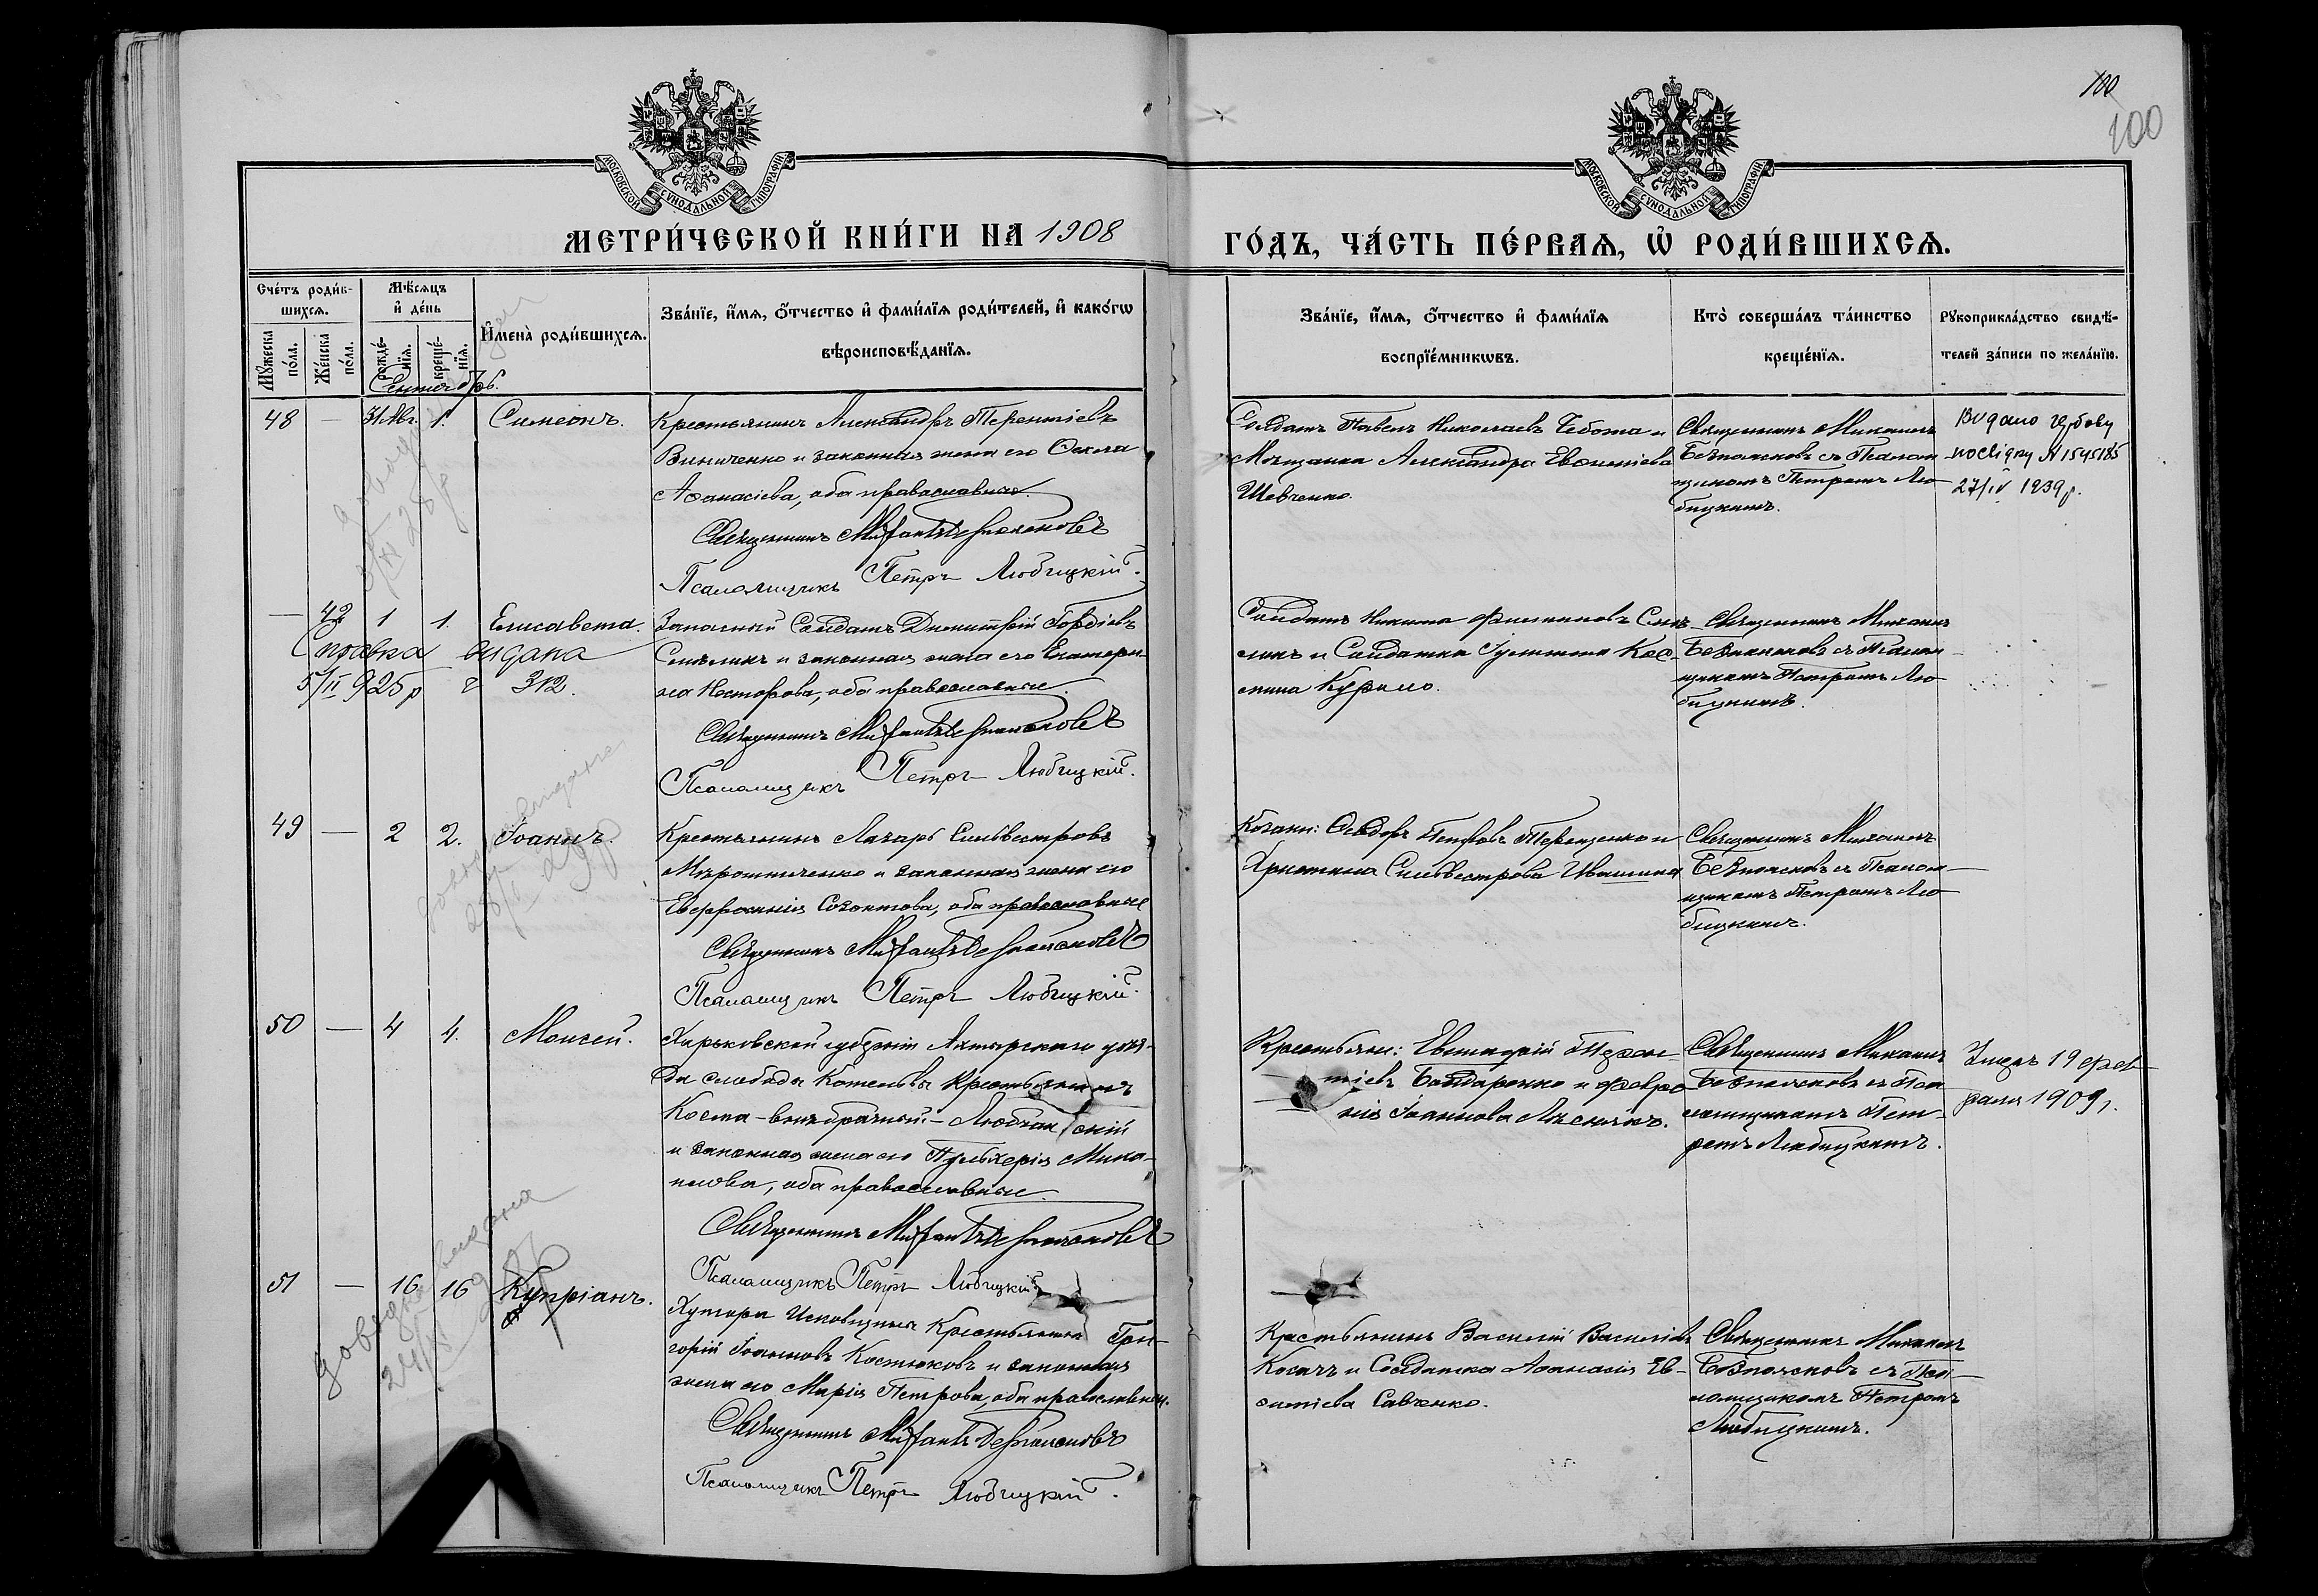 100
100
МОСКОВСКОЙ СѴНОДАЛЬНОЙ ТИПОГРАФІИ
МОСКОВСКОЙ СѴНОДАЛЬНОЙ ТИПОГРАФІИ
МЕТРИ́ЧЕСКОЙ КНИ́ГИ НА 1908
ГО́ДЪ, ЧА́СТЬ ПЕ́РВАѦ, Ѡ҆ РОДИ́ВШИХСѦ.
Сче́тъ роди́в-
шихсѧ.
Мꙋжеска
по́ла.
Же́нска
по́ла.
Мѣ́сѧцъ
и҆ де́нь
рожде́-
нїѧ.
креще́-
нїѧ.
И҆мена̀ роди́вшихсѧ.
Зва́нїе, и҆́мѧ, ѻ҆́тчество и҆ фами́лїѧ роди́телей, и҆ како́гѡ
вѣроисповѣ́данїѧ.
Зва́нїе, и҆́мѧ, ѻ҆́тчество и҆ фами́лїѧ
воспрїе́мникѡвъ.
Кто̀ соверша́лъ та́инство
креще́нїѧ.
Рꙋкоприкла́дство свидѣ́-
телей за́писи по жела́нїю.
Сентябрь.
48 — 31 Авг. 1. Симеонъ.
Крестьянинъ Александръ Терентіевъ
Виниченко и законная жена его Ѳекла
Аѳанасіева, оба православные.
Священникъ
Псаломщикъ Петръ Любицкій.
Солдатъ Павелъ Николаевъ Чебота и
Мѣщанка Александра Евѳиміева
Шевченко.
Священникъ Михаилъ
Безпоясковъ съ Псалом
щикомъ Петромъ Лю
бицкимъ.
Видано
№ 1545185
27/IV 1939 р.
— 42 1 1. Елисавета.
Справка видана
5/II 925 р 312.
Запасный Солдатъ Димитрій Гордіевъ
и законная жена его Екатери-
на Несторова, оба православные.
Священникъ
Псаломщикъ Петръ Любицкій.
Солдатъ Никита Филиповъ
и Солдатка Іустина Кос-
мина Курило.
Священникъ Михаилъ
Безпоясковъ съ Псалом
щикомъ Петромъ Лю
бицкимъ.
49 — 2 2. Іоаннъ.
28/I 29 р
Крестьянинъ Лазарь Сильвестровъ
Мирошниченко и законная жена его
Евфросинія Созонтова, оба православные
Священникъ
Псаломщикъ Петръ Любицкій.
Козаки: Ѳеодоръ Петровъ Терещенко и
Христина Сильвестрова Ивашина
Священникъ Михаилъ
Безпоясковъ съ Псалом
щикомъ Петромъ Лю
бицкимъ.
50 — 4 4. Моисей.
Харьковской губерніи Ахтырскаго уѣз-
да слободы Котельвы Крестьянинъ
Косма-внѣбрачный-
и законная жена его Пульхерія Миха-
илова, оба православные.
Священникъ
Псаломщикъ Петръ Любицкій
Крестьяне: Евстафій Терен
тіевъ Бондаренко и Февро
нія Іоаннова
Священникъ Михаилъ
Безпоясковъ съ Пса
ломщикомъ Пет-
ромъ Любицкимъ.
Умеръ 19 фев-
раля 1909 г.
51 — 16 16 Кипріанъ.
Довідка видана
Хутора Крестьянинъ Гри-
горій Іоанновъ Костюковъ и законная
жена его Марія Петрова, оба православные.
Священникъ
Псаломщикъ Петръ Любицкій.
Крестьянинъ Василій Василіевъ
Косачъ и Солдатка Аѳанасія Ев-
ѳиміева Савченко.
Священникъ Михаилъ
Безпоясковъ съ Пса
ломщикомъ Петромъ
Любицкимъ.